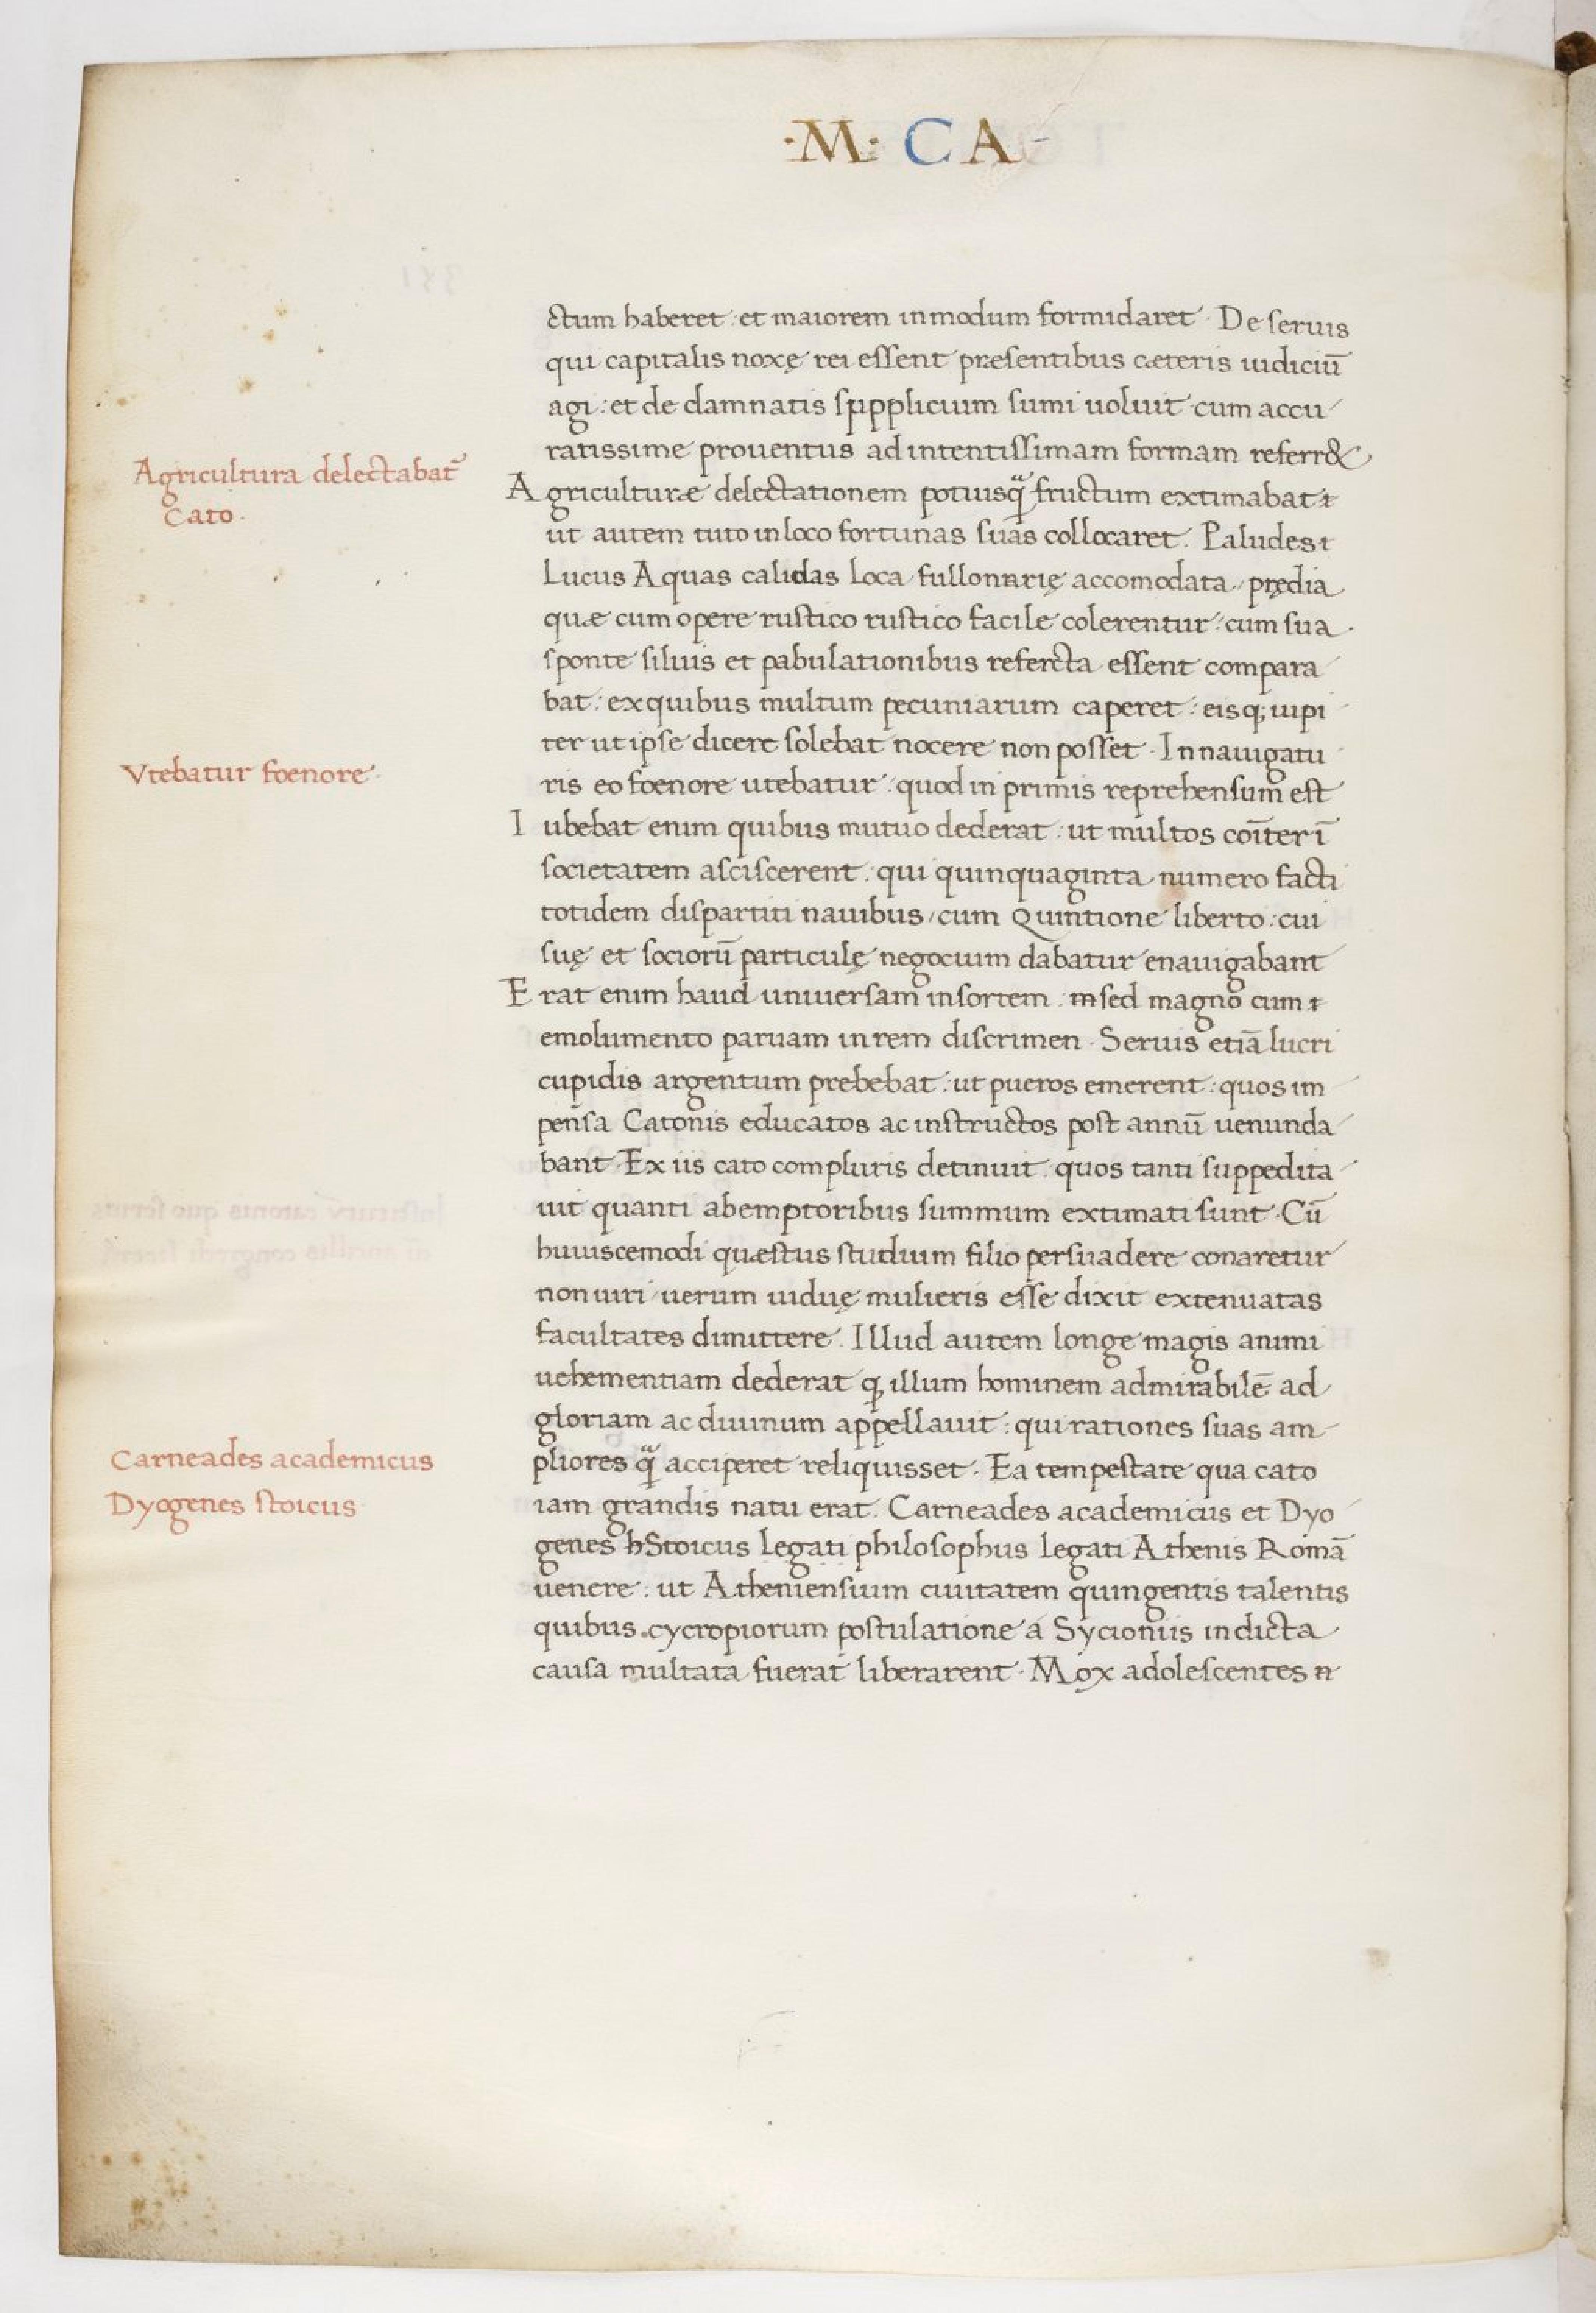 ·M· CA-
ctum haberet : et maiorem inmodum formidaret · De seruis
qui capitalis noxę rei essent præsentibus cæteris iudiciū
agi : et de damnatis supplicium sumi uoluit cum accu
ratissime prouentus ad intentissimam formam referr&
Agricultura delectabat̄
Cato.
Agriculturæ delectationem potiusq̃ fructum extimabat
ut autem tuto in loco fortunas suas collocaret. Paludes
Lucus Aquas calidas loca fullonarię accomodata, prędia
quæ cum opere rustico rustico facile colerentur : cum sua
sponte siluis et pabulationibus refercta essent compara
bat : ex quibus multum pecuniarum caperet : eisq; iupi
ter ut ipse dicere solebat nocere non posset · In nauigatu
Vtebatur foenore·
ris eo foenore utebatur : quod in primis reprehensum est
Iubebat enim quibus mutuo dederat : ut multos coīter ī
societatem asciscerent : qui quinquaginta numero facti
totidem dispartiti nauibus, cum Quintione liberto : cui
suę et sociorū particulę negocium dabatur enauigabant
Erat enim haud uniuersam insortem : sed magno cum
emolumento paruam in rem discrimen · Seruis etiā lucri
cupidis argentum prebebat : ut pueros emerent : quos im
pensa Catonis educatos ac instructos post annū uenunda
bant · Ex iis cato compluris detinuit quos tanti suppedita
uit quanti abemptoribus summum extimati sunt · Cū
huiuscemodi quæstus studium filio persuadere conaretur
non uiri uerum uiduę mulieris esse dixit extenuatas
facultates dimittere. Illud autem longe magis animi
uehementiam dederat ꝙ illum hominem admirabilē ad
gloriam ac diuinum appellauit : qui rationes suas am
Carneades academicus
pliores q̃ acciperet reliquisset. Ea tempestate qua cato
Dyogenes stoicus
iam grandis natu erat. Carneades academicus et Dyo
genes Stoicus legati philosophus legati Athenis Romā
uenere : ut Atheniensium ciuitatem quingentis talentis
quibus cycropiorum postulatione a Sycioniis indicta
causa multata fuerat liberarent · Mox adolescentes